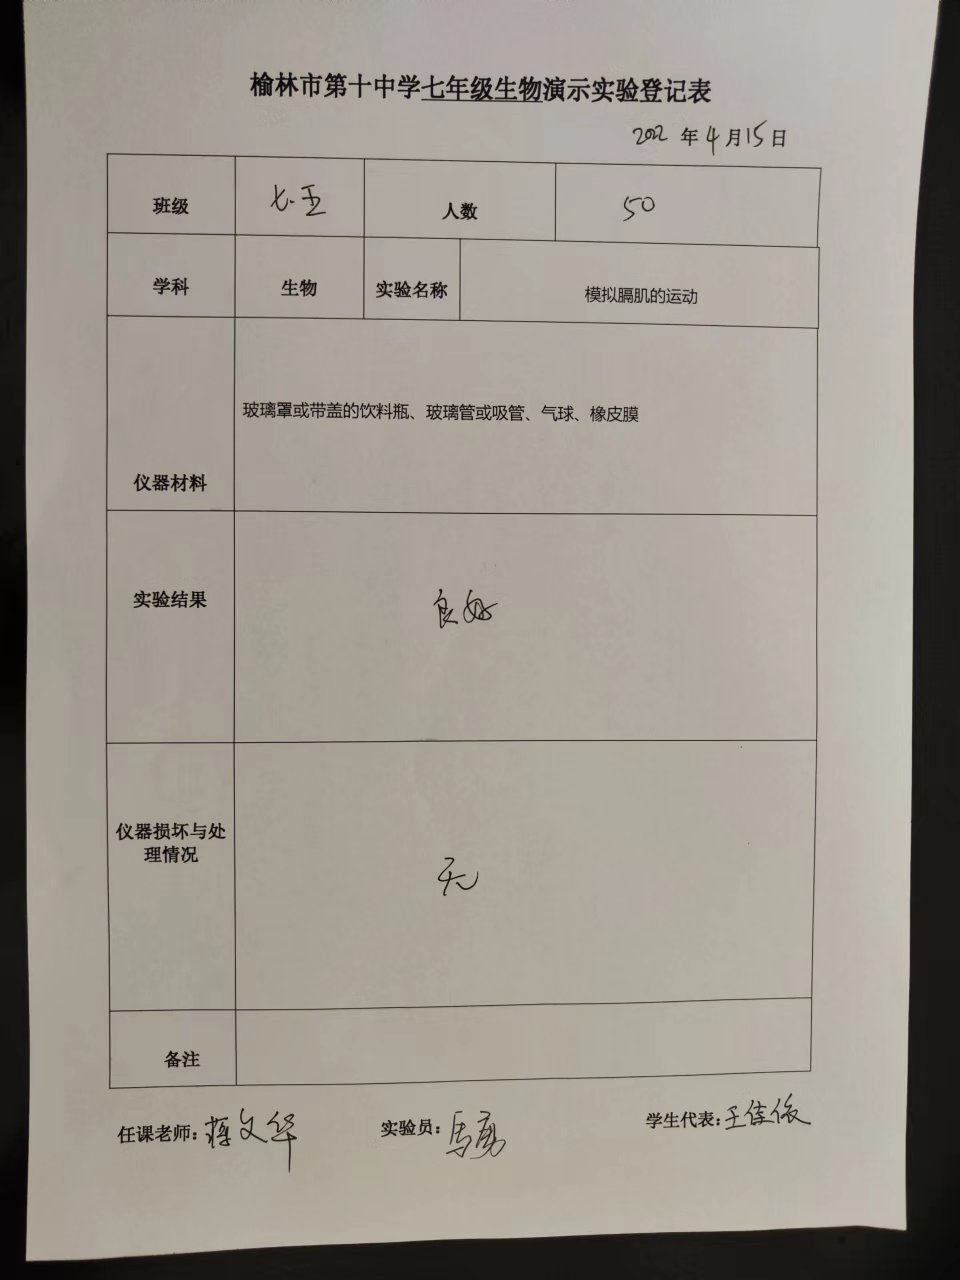 榆林市第十中学七年级生物演示实验登记表
2022 年 4 月 15 日
班级 七.五 人数 50
学科 生物 实验名称 模拟膈肌的运动
玻璃罩或带盖的饮料瓶、玻璃管或吸管、气球、橡皮膜
仪器材料
实验结果 良好
仪器损坏与处
理情况
无
备注
任课老师: 蒋文华 实验员: 马勇 学生代表: 王佳依